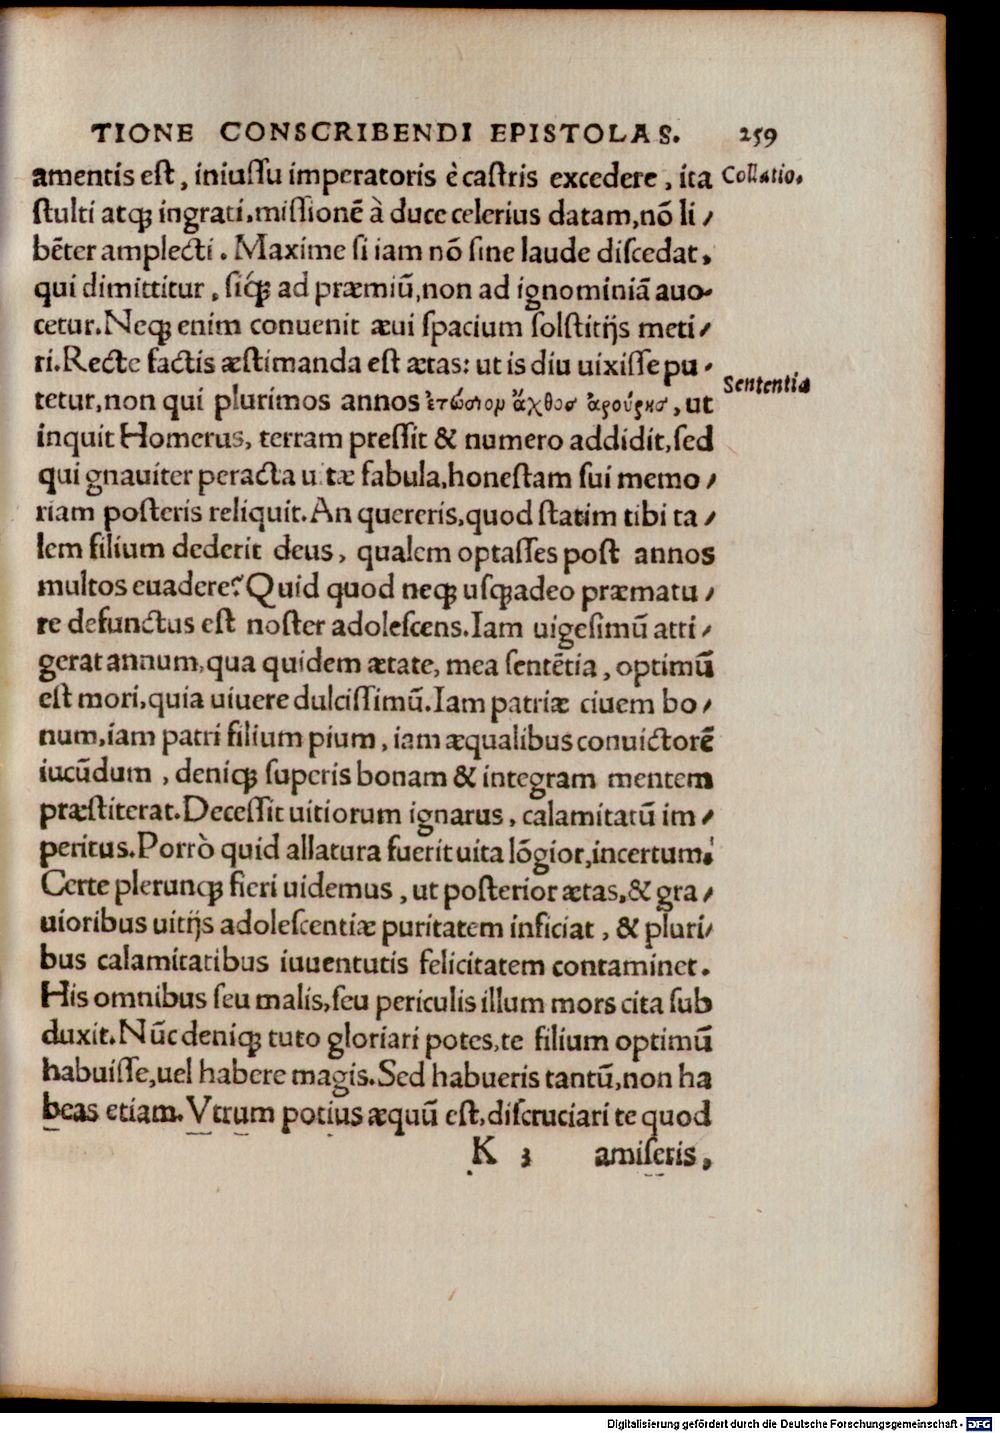 TIONE CONSCRIBENDI EPISTOLAS. 259
amentis eſt, iniuſſu imperatoris è caſtris excedere, ita
Collatio.
ſtulti atqꝫ ingrati, miſſionē à duce celerius datam, nō li/
bēter amplecti. Maxime ſi iam nō ſine laude diſcedat,
qui dimittitur, ſicꝫ ad præmiū, non ad ignominiā auo-
cetur. Neqꝫ enim conuenit æui ſpacium ſolſtitijs meti/
ri. Recte factis æſtimanda eſt ætas: ut is diu uixiſſe pu/
Sententia
tetur, non qui plurimos annos ἐτώσιον ἄχθος ἀρούρης, ut
inquit Homerus, terram preſſit & numero addidit, ſed
qui gnauiter peracta uitæ fabula, honeſtam ſui memo/
riam poſteris reliquit. An quereris, quod ſtatim tibi ta/
lem filium dederit deus, qualem optaſſes poſt annos
multos euadere? Quid quod neqꝫ uſqꝫadeo præmatu/
re defunctus eſt noſter adoleſcens. Iam uigeſimū atti/
gerat annum, qua quidem ætate, mea ſentētia, optimū
eſt mori, quia uiuere dulciſſimū. Iam patriæ ciuem bo/
num, iam patri filium pium, iam æqualibus conuictorē
iucūdum, deniqꝫ ſuperis bonam & integram mentem
præſtiterat. Deceſſit uitiorum ignarus, calamitatū im/
peritus. Porrò quid allatura fuerit uita lōgior, incertum.
Certe plerunqꝫ fieri uidemus, ut poſterior ætas, & gra/
uioribus uitijs adoleſcentiæ puritatem inficiat, & pluri/
bus calamitatibus iuuentutis felicitatem contaminet.
His omnibus ſeu malis, ſeu periculis illum mors cita ſub
duxit. Nūc deniqꝫ tuto gloriari potes, te filium optimū
habuiſſe, uel habere magis. Sed habueris tantū, non ha
beas etiam. Vtrum potius æquū eſt, diſcruciari te quod
K 3 amiſeris,
Digitalisierung gefördert durch die Deutsche Forschungsgemeinschaft - DFG